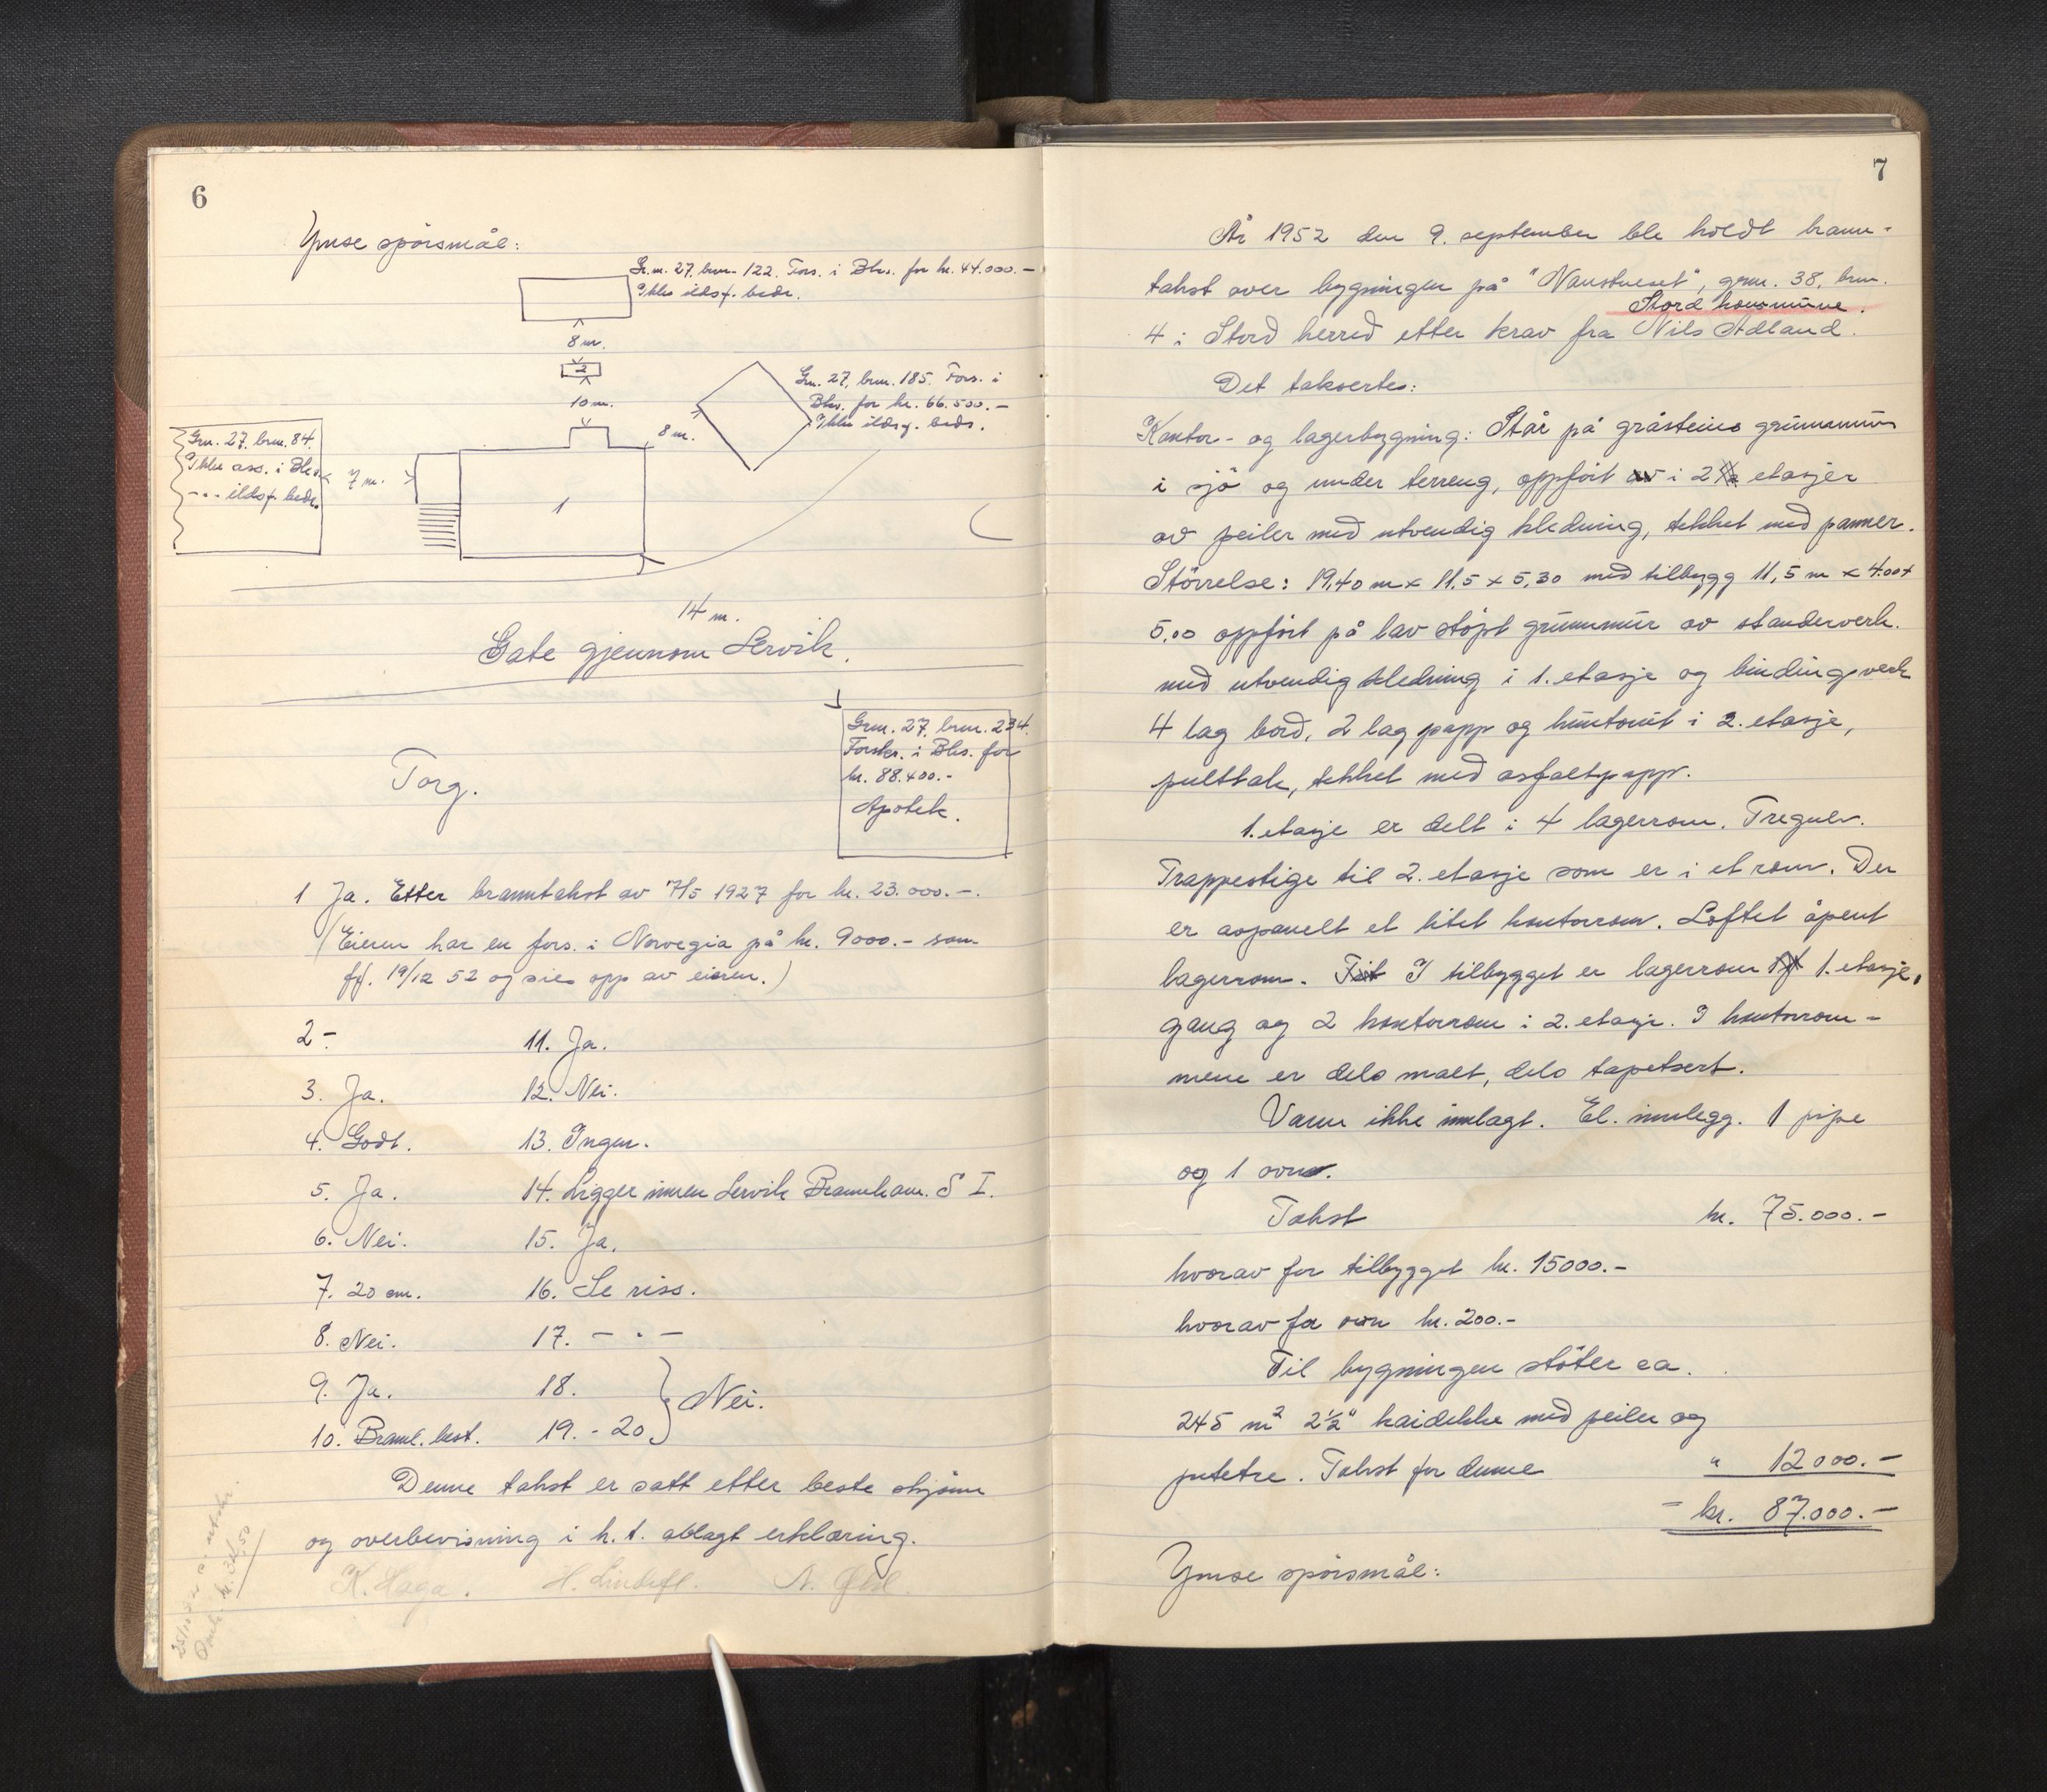 6
Ymse spørsmål:
Gn. 27, brn. 122. Fors. i Bks. for kr. 44.000.-
Ikke ildsf. bedr.
8 m.
2
10 m.
Gn. 27, brn. 185. Fors. i
Bks. for kr. 66.500.-
Ikke ildsf. beds.
8 m.
Gn. 27, brn. 84.
Ikke ass. i Bks.
-"- ildsf. bedr.
7 m.
1
14 m.
Gate gjennom Lervik.
Torg.
Grn. 27, brn. 234.
Forskr. i Bks. for
kr. 88.400.-
Apotek.
1 Ja. Etter branntakst av 7/5 1927 for kr. 23.000.-.
(Eieren har en fors. i Norvegia på kr. 9000.- som
ff. 19/12 52 og sies opp av eieren.)
2 -
3. Ja.
4. Godt.
5. Ja.
6. Nei.
7. 20 cm.
8. Nei.
9. Ja.
10. Braml. best.
11. Ja.
12. Nei.
13. Ingen.
14. Ligger innen Lervik Brannkom. S I.
15. Ja.
16. Se riss.
17. - " -
18.
19. - 20
Nei.
Denne takst er satt etter beste skjønn
og overbevisning i h.t. avlagt erklæring.
K. Haga. H. Lindefl. N.
7
År 1952 den 9. september ble holdt brann-
takst over bygningen på "Naustneset", grn. 38, brn.
Stord kommune.
4 i Stord herred etter krav fra Nils Adland.
Det taksertes:
Kontor- og lagerbygning: Står på gråsteins grunnmur
i sjø og under terreng, oppført av i 2 ½ etasjer
av peiler med utvendig kledning, tekket med panner.
Størrelse: 19,40 m x 11,5 x 5,30 med tilbygg 11,5 m x 4.00 x
5,00 oppført på lav støpt grunnmur av standerverk.
med utvendig kledning i 1. etasje og bindingsverk
4 lag bord, 2 lag papp og huntonit i 2. etasje,
pulttak, tekket med asfaltpapp.
1. etasje er delt i 4 lagerrom. Tregulv.
Trappestige til 2. etasje som er i et rom. Der
er avpanelt et litet kontorrom. Loftet åpent
lagerrom. I tilbygget er lagerrom 1. etasje,
gang og 2 kontorrom i 2. etasje. I kontorrom-
mene er dels malt, dels tapetsert.
Vann ikke innlagt. El. innlegg. 1 pipe
og 1 ovn.
Takst kr. 75.000.-
hvorav for tilbygget kr. 15000.-
hvorav for ovn kr. 200.-
Til bygningen støter ca.
245 m² 2½" kaidekke med peiler og
putetre. Takst for denne " 12000.-
- kr. 87.000.-
Ymse spørsmål: